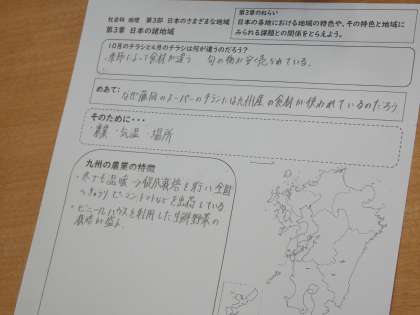 社会科 地理 第3部 日本のさまざまな地域
第3章 日本の諸地域
第3章のねらい
日本の各地における地域の特色や、その特色と地域に
みられる課題との関係をとらえよう。
10月のチラシと4月のチラシは何が違うのだろう?
・季節によって食材が違う 旬の物が多く売られている。
めあて:
なぜ藤阪のスーパーのチラシには九州産の食材が使われているのだろう
そのために・・・
農業 ・気温 ・場所
九州の農業の特徴
・冬でも温暖→促成栽培を行い全国
へきゅうり、ピーマン、トマトなどを出荷している
・ビニールハウスを利用した生鮮野菜の
栽培が盛ん